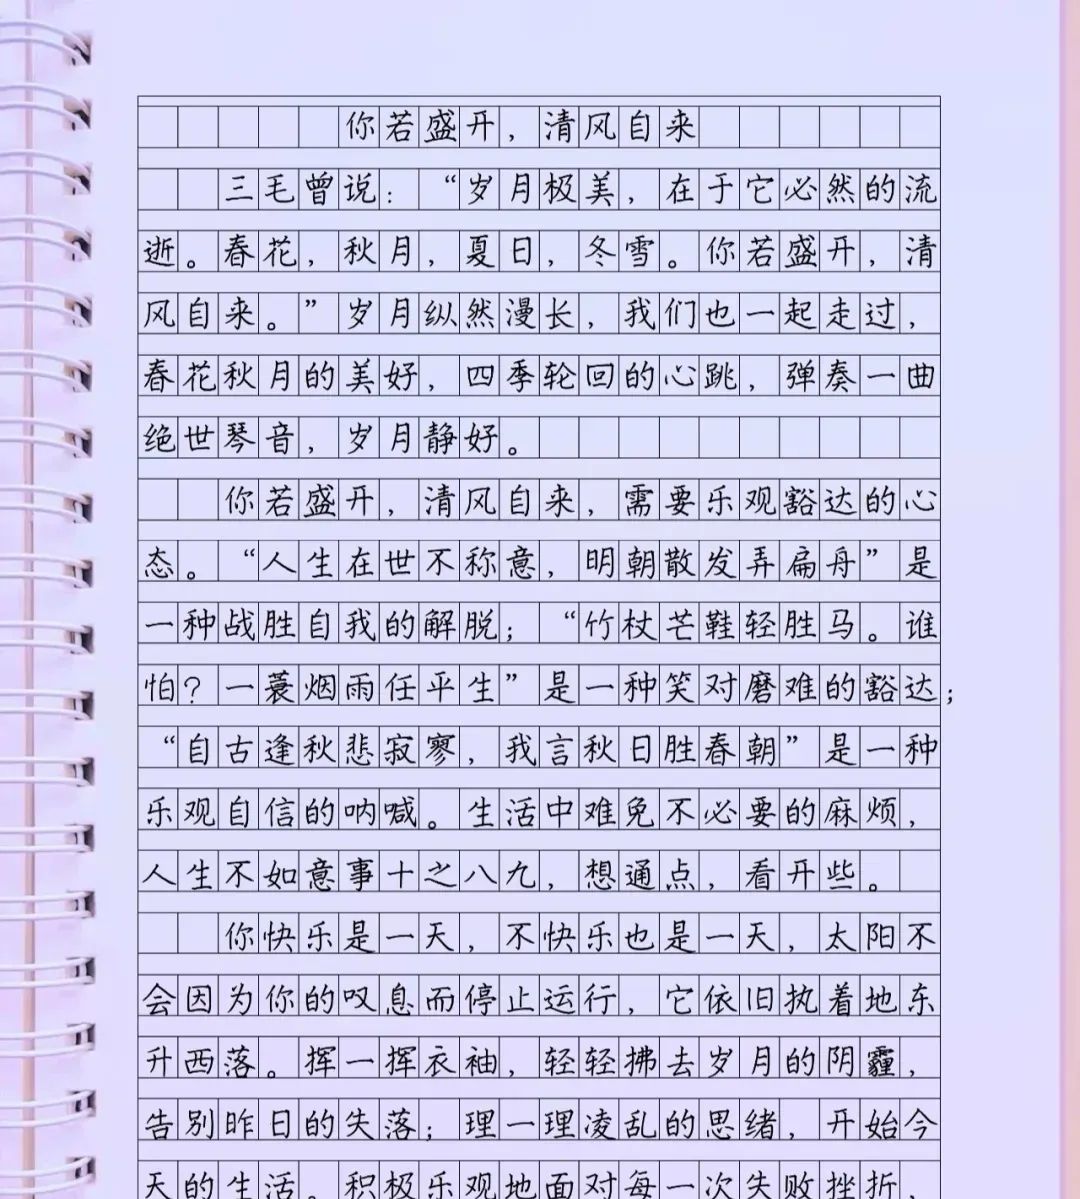 你若盛开，清风自来
三毛曾说：“岁月极美，在于它必然的流
逝。春花，秋月，夏日，冬雪。你若盛开，清
风自来。”岁月纵然漫长，我们也一起走过，
春花秋月的美好，四季轮回的心跳，弹奏一曲
绝世琴音，岁月静好。
你若盛开，清风自来，需要乐观豁达的心
态。“人生在世不称意，明朝散发弄扁舟”是
一种战胜自我的解脱；“竹杖芒鞋轻胜马。谁
怕？一蓑烟雨任平生”是一种笑对磨难的豁达；
“自古逢秋悲寂寥，我言秋日胜春朝”是一种
乐观自信的呐喊。生活中难免不必要的麻烦，
人生不如意事十之八九，想通点，看开些。
你快乐是一天，不快乐也是一天，太阳不
会因为你的叹息而停止运行，它依旧执着地东
升西落。挥一挥衣袖，轻轻拂去岁月的阴霾，
告别昨日的失落；理一理凌乱的思绪，开始今
天的生活。积极乐观地面对每一次失败挫折，